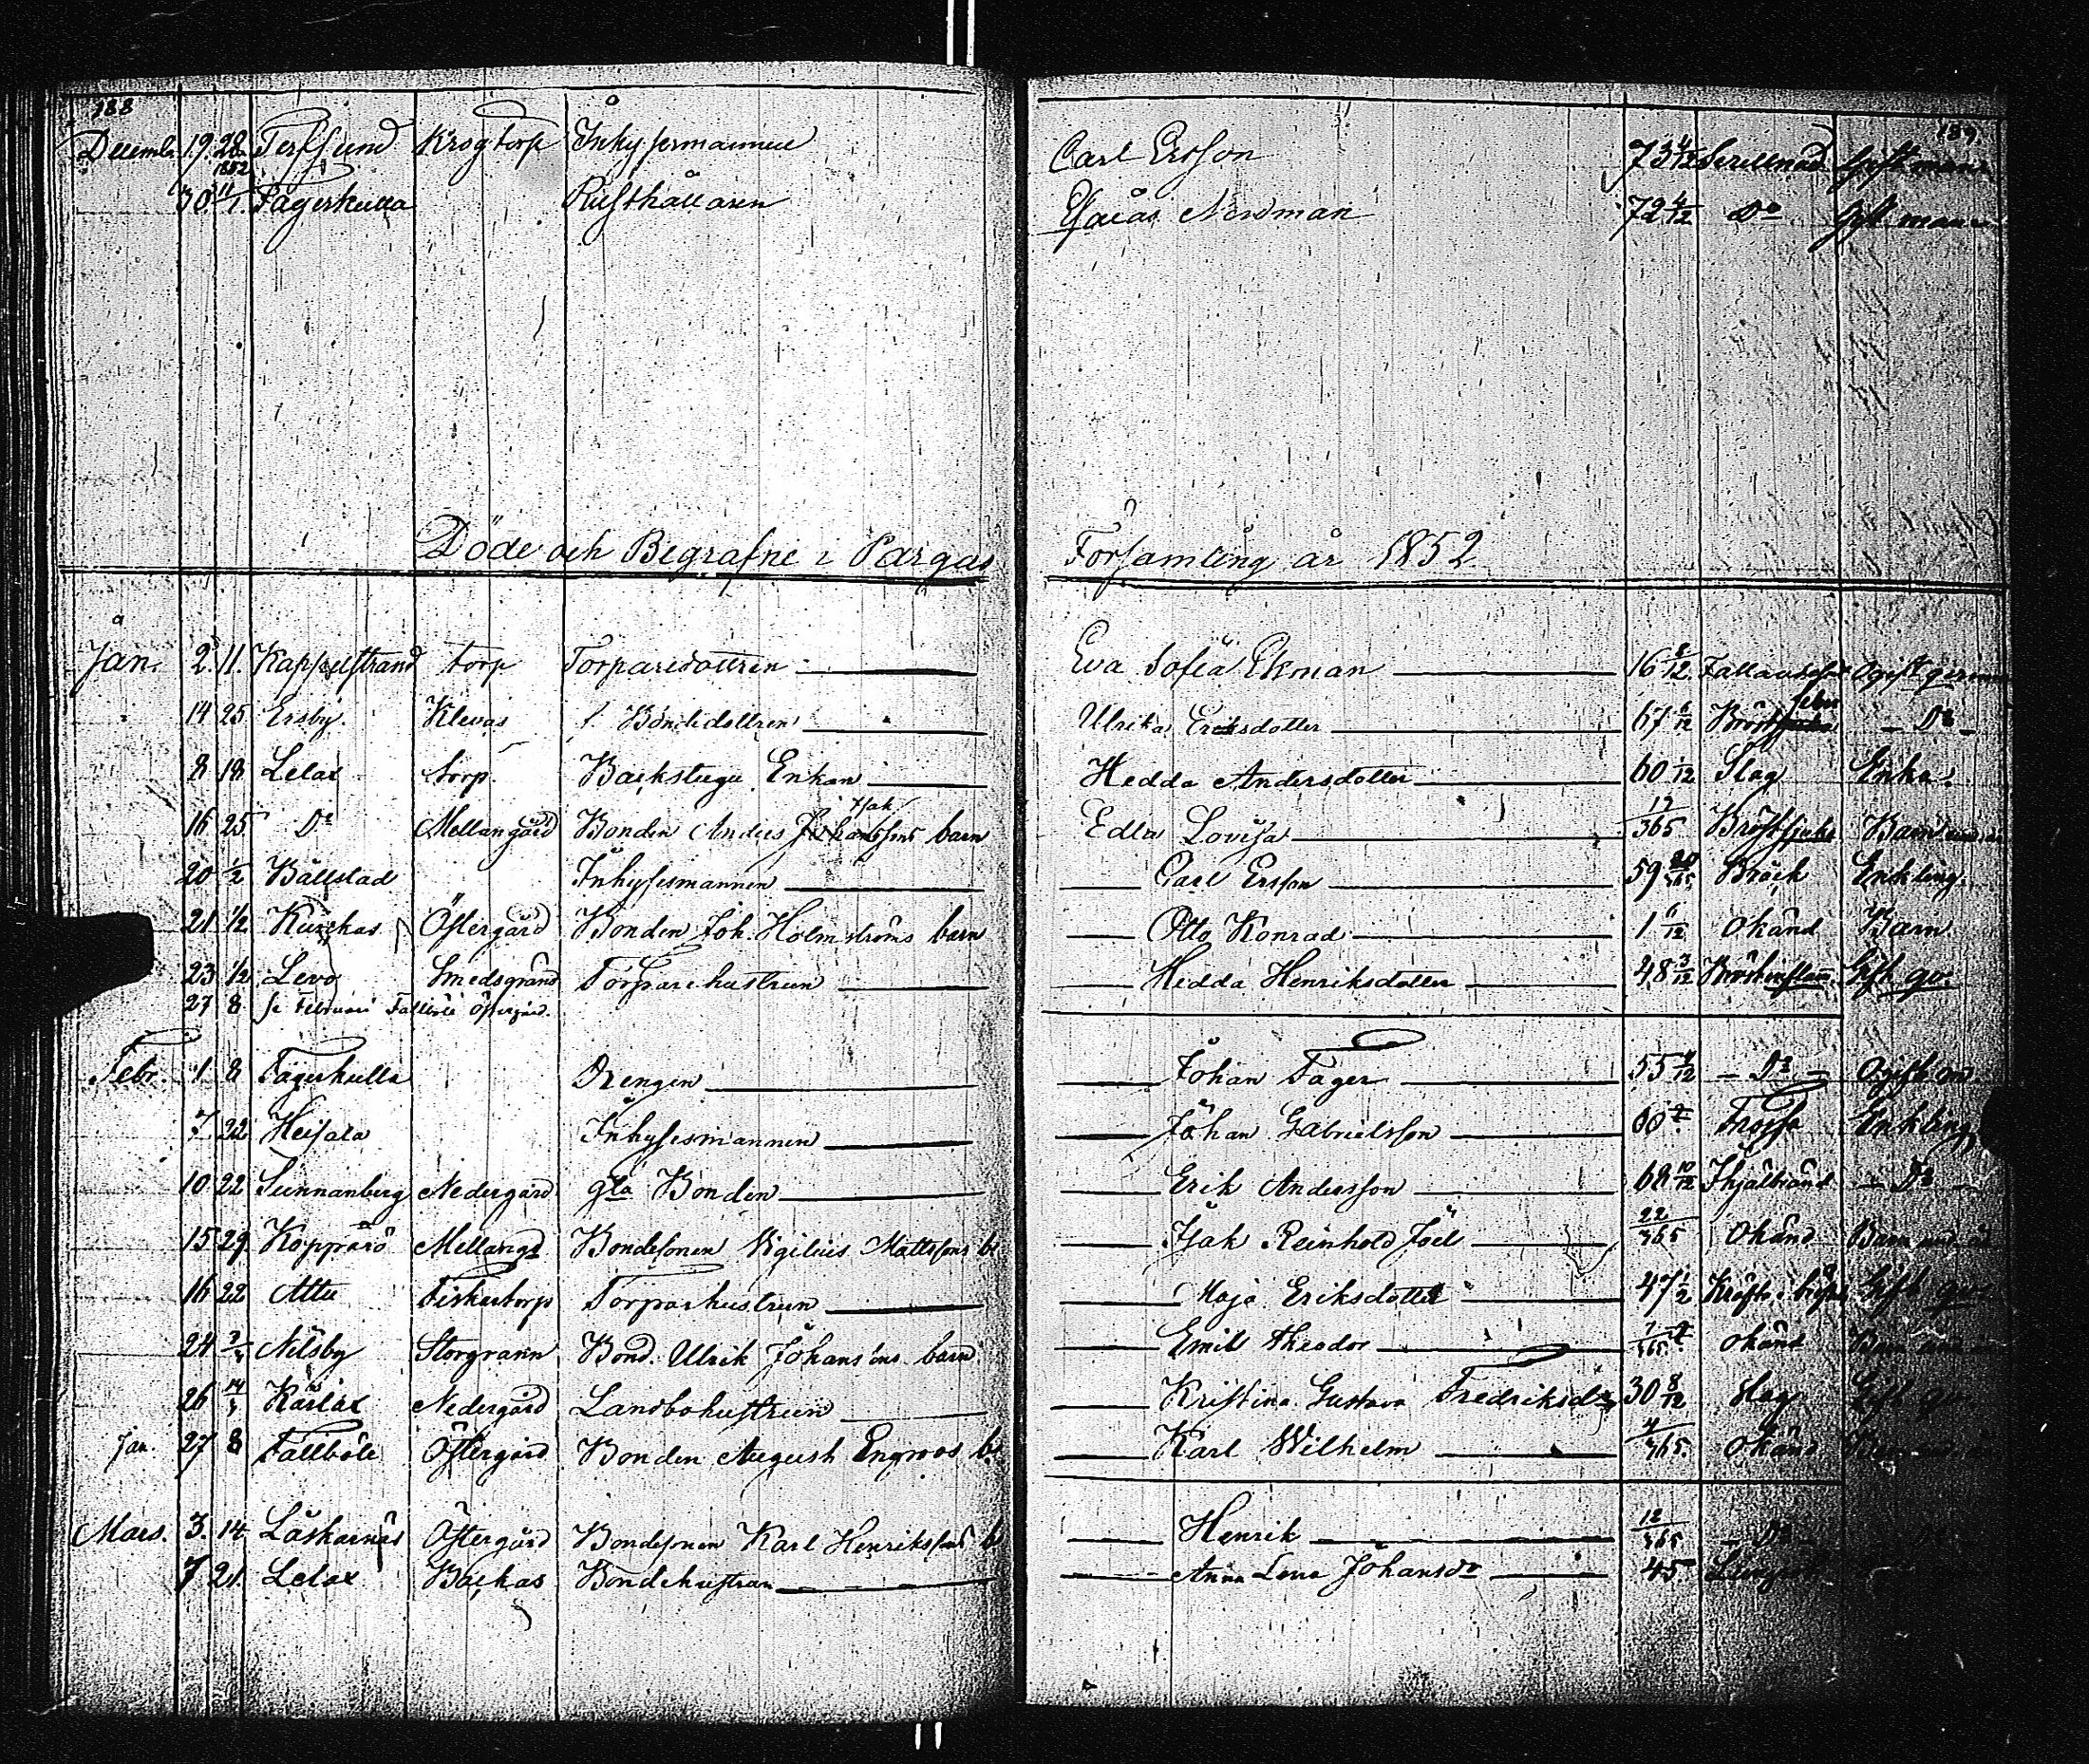 188
189
Decemb. 19. 28. Terfsund Krogtorp Inhysesmannen Carl Ersson 73 4/12 Gift man
1852
30 11/1. Fagerkulla Rusthållaren Esaias Nordman 72 4/12 Do Gift man
Döde och Begrafne i Pargas Församling år 1852
Jan. 2. 11. Kappelstrand torp Torparedottren Eva Sofia Ekman 16 Fallandesot Ogift
14 25 Ersby Klevas f. Bondedottren Ulrika Ericsdotter 67 Bröst feber Do
8 18 Lelax torp. Backstugu Enkan Hedda Andersdotter 60 Slag Enka.
16 25 Do Mellangård Bonden Anders Isakssons barn Edla Lovisa 17/365 Bröstsjuka Barn
20 1/2 Bällstad Inhysesmannen Carl Ersson 59 20/365 Bråck Enkling.
21. 1/2 Kurckas Östergård Bonden Joh. Holmströms barn Otto Konrad 1 6/12 Okänd Barn
23 1/2 Levo Smedsgränd Torparehustrun Hedda Henriksdotter 48 3/12 Gift qv.
27 8. se Februari Fallböle Östergård.
Febr. 1 8 Fagerkulla Drengen Johan Fager 55 Do Ogift m.
7 22 Heisala Inhysesmannen Johan Gabrielsson 60 Frossa Enkling
10 22 Sunnanberg Nedergård gla Bonden Erik Andersson 68 10/12 Do
15 29. Kopparö Mellangd Bondesonen Vigilius Mattssons b. Isak Reinhold Joel 22/365 Okänd Barn
16 22 Attu Fiskartorp Torparhustrun Maja Eriksdotter 47 1/2 Kräfta i Gift qv.
24 Nilsby Storgrann Bond. Ulrik Johanssons barn Emil Theodor Okänd Barn
26 14/3 Kärlax Nedergård Landbohustrun Kristina Gustava Fredriksdr 30 8/12 Slag Gift qv
Jan. 27 8 Fallböle Östergård Bonden August Engroos b. Karl Wilhelm 4/365. Okänd
Mars. 3. 14. Läskarnäs Östergård Bondesonen Karl Henrikssons b Henrik 12/365 Do
7 21. Lelax Backas Bondehustrun Anna Lena Johansdr 45